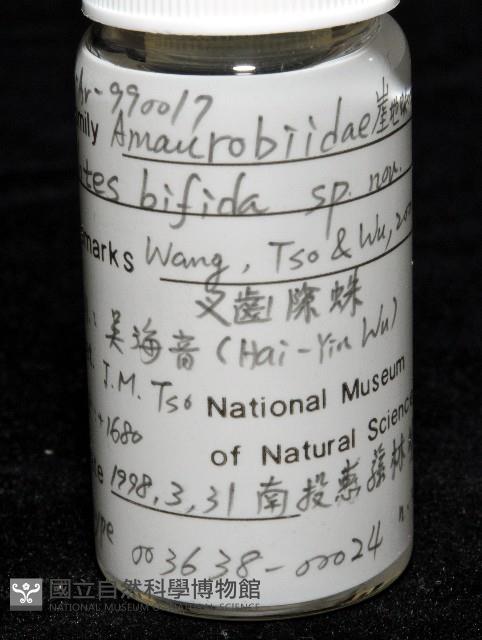 Ar-990017
Family Amaurobiidae 崖地蛛
tes bifida sp. nov.
marks Wang, Tso & Wu, 200
叉齒隙蛛
吴海音 (Hai-Yin Wu)
I.M. Tso National Museum
+1680 of Natural Science
1998,3,31 南投惠蓀林
003638-00024
國立自然科學博物館
NATIONAL MUSEUM OF NATURAL SCIENCE